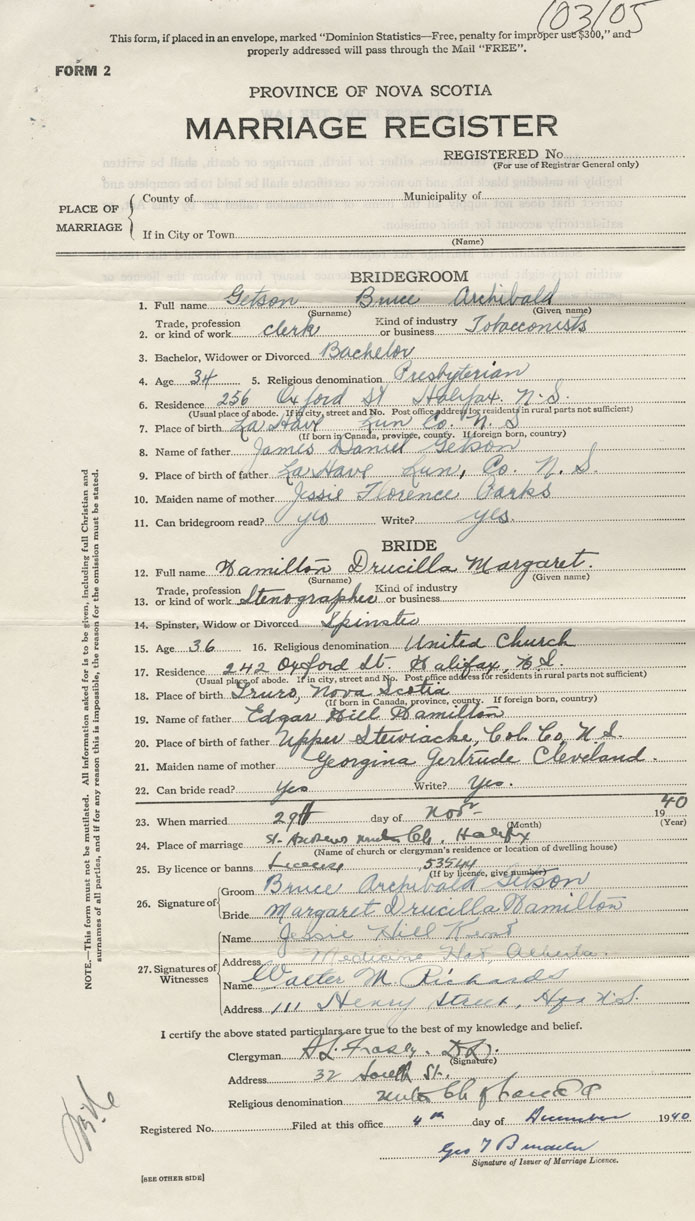 103/05
This form, if placed in an envelope, marked "Dominion Statistics—Free, penalty for improper use $300," and
properly addressed will pass through the Mail "FREE".
FORM 2
PROVINCE OF NOVA SCOTIA
MARRIAGE REGISTER
REGISTERED No.
(For use of Registrar General only)
PLACE OF MARRIAGE
County of Municipality of
If in City or Town
(Name)
BRIDEGROOM
1. Full name Getson Bruce Archibald
(Surname) (Given name)
2. Trade, profession or kind of work clerk Kind of industry or business Tobacconists
3. Bachelor, Widower or Divorced Bachelor
4. Age 34 5. Religious denomination Presbyterian
6. Residence 256 Oxford St Halifax. N.S.
(Usual place of abode. If in city, street and No. Post office address for residents in rural parts not sufficient)
7. Place of birth La Have Lun Co. N. S
(If born in Canada, province, county. If foreign born, country)
8. Name of father James Daniel Getson
9. Place of birth of father La Have Lun, Co. N. S.
10. Maiden name of mother Jessie Florence Parks
11. Can bridegroom read? yes Write? yes.
BRIDE
12. Full name Hamilton Drucilla Margaret.
(Surname) (Given name)
13. Trade, profession or kind of work Stenographer Kind of industry or business
14. Spinster, Widow or Divorced Spinster
15. Age 36 16. Religious denomination United Church
17. Residence 242 Oxford St. Halifax, N.S.
(Usual place of abode. If in city, street and No. Post office address for residents in rural parts not sufficient)
18. Place of birth Truro, Nova Scotia
(If born in Canada, province, county. If foreign born, country)
19. Name of father Edgar Hill Hamilton
20. Place of birth of father Upper Stewiacke, Col. Co, N.S.
21. Maiden name of mother Georgina Gertrude Cleveland.
22. Can bride read? Yes Write? Yes.
23. When married 29th day of Nov 1940
(Month) (Year)
24. Place of marriage St. Andrews United Ch, Halifax
(Name of church or clergyman's residence or location of dwelling house)
25. By licence or banns License 53544
(If by licence, give number)
26. Signature of
Groom Bruce Archibald Getson
Bride Margaret Drucilla Hamilton
27. Signatures of Witnesses
Name Jessie Hill Kent
Address Medicine Hat, Alberta.
Name Walter M. Richards
Address 111 Henry Street, Hfx N.S.
NOTE.—This form must not be mutilated. All information asked for is to be given, including full Christian and
surnames of all parties, and if for any reason this is impossible, the reason for the omission must be stated.
I certify the above stated particulars are true to the best of my knowledge and belief.
Clergyman
(Signature)
Address 32 South St.
Religious denomination United Ch of Canada
Registered No. Filed at this office 4th day of December 1940
Geo
Signature of Issuer of Marriage Licence.
[SEE OTHER SIDE]